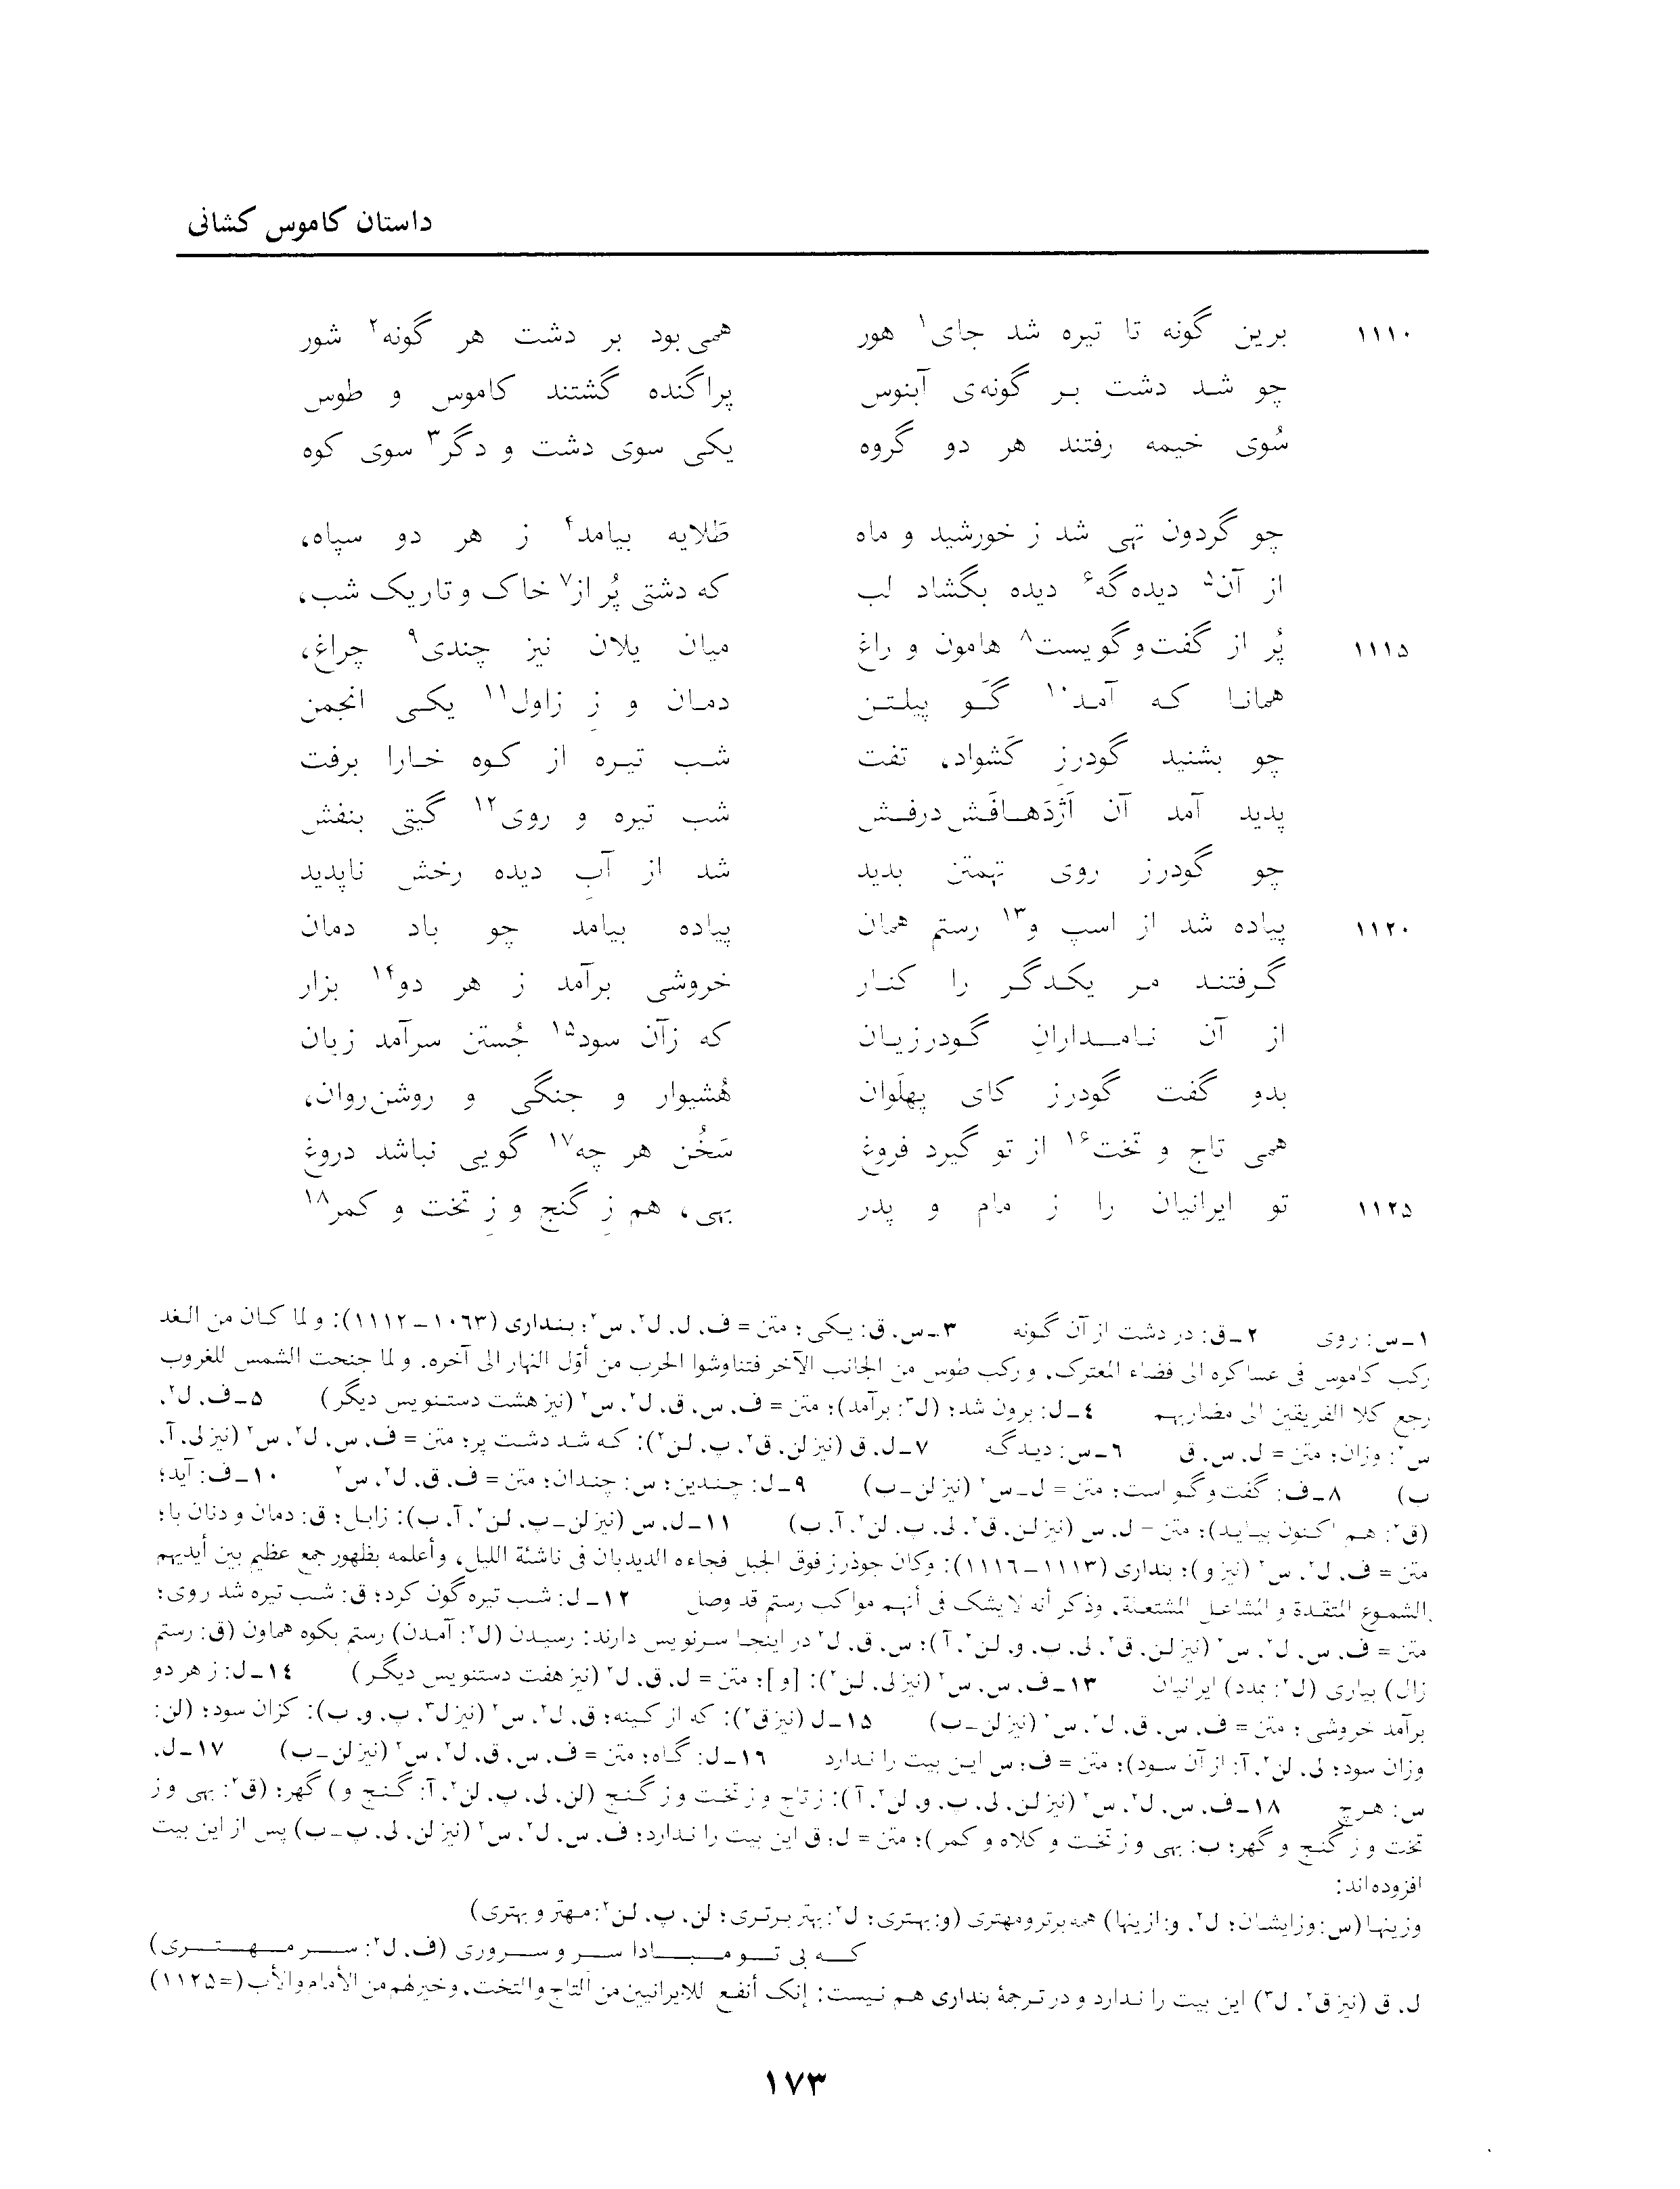 داستان کاموس کشانی
۱۱۱۰ برین گونه تا تیره شد جای۱ هور همی‌بود بر دشت هر گونه۲ شور
چو شد دشت بر گونه‌ی آبنوس پراگنده گشتند کاموس و طوس
سُوی خیمه رفتند هر دو گروه یکی سوی دشت و دگر۳ سوی کوه
چو گردون تهی شد ز خورشید و ماه طَلایه بیامد۴ ز هر دو سپاه،
از آن۵ دیده‌گه۶ دیده بگشاد لب که دشتی پُر از۷ خاک و تاریک شب،
۱۱۱۵ پُر از گفت‌و‌گویست۸ هامون و راغ میان یلان نیز چندی۹ چراغ،
همانا که آمد۱۰ گَو پیلتن دمان و زِ زاول۱۱ یکی انجمن
چو بشنید گودرزِ کَشواد، تفت شب تیره از کوه خارا برفت
پدید آمد آن اَژدَهافَش درفش شب تیره و روی۱۲ گیتی بنفش
چو گودرز روی تهمتن بدید شد از آبِ دیده رخش ناپدید
۱۱۲۰ پیاده شد از اسپ و۱۳ رستم همان پیاده بیامد چو باد دمان
گرفتند مر یکدگر را کنار خروشی برآمد ز هر دو۱۴ بزار
از آن نامدارانِ گودرزیان که زآن سود۱۵ جُستن سرآمد زیان
بدو گفت گودرز کای پهلَوان هُشیوار و جنگی و روشن‌روان،
همی تاج و تخت۱۶ از تو گیرد فروغ سَخُن هر چه۱۷ گویی نباشد دروغ
۱۱۲۵ تو ایرانیان را ز مام و پدر بهی، هم زِ گنج و زِ تخت و کمر۱۸
۱ـ س: روی ۲ـ ق: در دشت از آن گونه ۳ـ س، ق: یکی؛ متن = ف، ل، ل۲، س۲؛ بنداری (۱۰۶۳ـ۱۱۱۲): و لما کان من الغد
رکب کاموس فی عساکره الی فضاء المعترک، و رکب طوس من الجانب الآخر فتناوشوا الحرب من أوّل النهار الی آخره. و لما جنحت الشمس للغروب
رجع کلا الفریقین الی مضاربهم ۴ـ ل: برون شد؛ (ل۳: برآمد)؛ متن = ف، س، ق، ل۲، س۲ (نیز هشت دستنویس دیگر) ۵ـ ف، ل۲،
س۲: وزان؛ متن = ل، س، ق ۶ـ س: دیدگه ۷ـ ل، ق (نیز لن، ق۲، پ، لن۲): که شد دشت پر؛ متن = ف، س، ل۲، س۲ (نیز لی، آ،
ب) ۸ـ ف: گفت‌و‌گو است؛ متن = ل ـ س۲ (نیز لن ـ ب) ۹ـ ل: چندین؛ س: چندان؛ متن = ف، ق، ل۲، س۲ ۱۰ـ ف: آید؛
(ق۲: هم اکنون بیاید)؛ متن = ل، س (نیز لن، ق۲، لی، پ، لن۲، آ، ب) ۱۱ـ ل، س (نیز لن ـ پ، لن۲، آ، ب): زابل؛ ق: دمان و دنان با؛
متن = ف، ل۲، س۲ (نیز و)؛ بنداری (۱۱۱۳ـ۱۱۱۶): وکان جوذرز فوق الجبل فجاءه الدیدبان فی ناشئة اللیل، وأعلمه بظهور جمع عظیم بین أیدیهم
الشموع المتقدة و المشاعل المشتعلة. وذکر أنه لایشک فی أنهم مواکب رستم قد وصل ۱۲ـ ل: شب تیره‌گون کرد؛ ق: شب تیره شد روی؛
متن = ف، س، ل۲، س۲ (نیز لن، ق۲، لی، پ، و، لن۲، آ)؛ س، ق، ل۲ در اینجا سرنویس دارند: رسیدن (ل۲: آمدن) رستم بکوه هماون (ق: رستم
زال) بیاری (ل۲: بمدد) ایرانیان ۱۳ـ ف، س، س۲ (نیز لی، لن۲): [و]؛ متن = ل، ق، ل۲ (نیز هفت دستنویس دیگر) ۱۴ـ ل: ز هر دو
برآمد خروشی؛ متن = ف، س، ق، ل۲، س۲ (نیز لن ـ ب) ۱۵ـ ل (نیز ق۲): که از کینه؛ ق، ل۲، س۲ (نیز ل۳، پ، و، ب): کزان سود؛ (لن:
وزان سود؛ لی، لن۲، آ: از آن سود)؛ متن = ف؛ س این بیت را ندارد ۱۶ـ ل: گاه؛ متن = ف، س، ق، ل۲، س۲ (نیز لن ـ ب) ۱۷ـ ل،
س: هرچ ۱۸ـ ف، س، ل۲، س۲ (نیز لن، لی، پ، و، لن۲، آ): ز تاج و ز تخت و ز گنج (لن، لی، پ، لن۲، آ: گنج و) گهر؛ (ق۲: بهی و ز
تخت و ز گنج و گهر؛ ب: بهی و ز تخت و کلاه و کمر)؛ متن = ل؛ ق این بیت را ندارد؛ ف، س، ل۲، س۲ (نیز لن، لی، پ ـ ب) پس از این بیت
افزوده‌اند:
وزینها (س: وزایشان؛ ل۲، و: ازینها) همه برتر و مهتری (و: بهتری؛ ل۲: بهتر برتری؛ لن، پ، لن۲: مهتر و بهتری)
که بی تو مبادا سر و سروری (ف، ل۲: سر مهتری)
ل، ق (نیز ق۲، ل۳) این بیت را ندارد و در ترجمهٔ بنداری هم نیست: إنک أنفع للایرانیین من التاج والتخت، وخیر لهم من الأمام والأب (= ۱۱۲۵)
۱۷۳